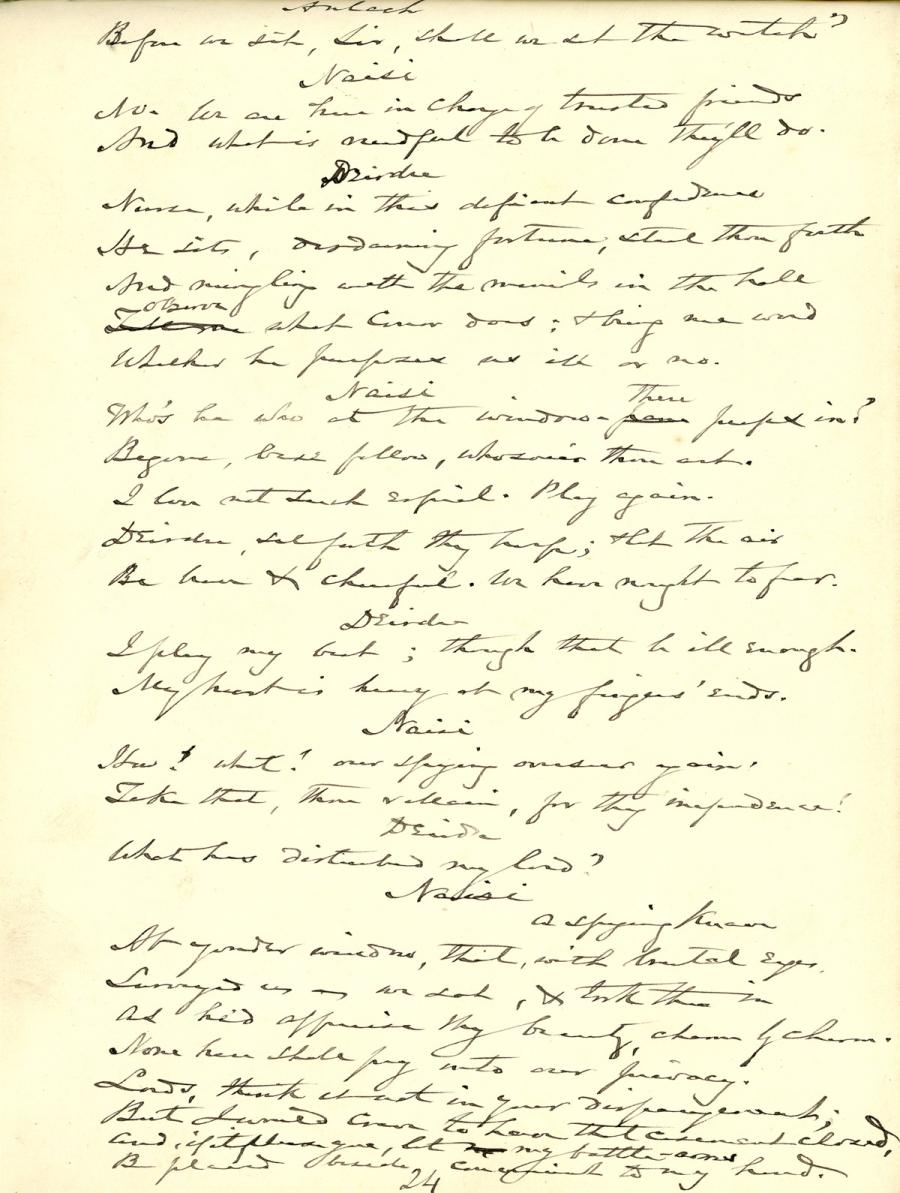 Ardan
Before we sit, Sir, shall we set the watch?
Naisi
No. We are here in charge of trusted friends
And what is needful to be done they'll do.
Deirdre
Nurse, while in this defiant confidence
He sits, disdaining fortune, steal thou forth
And mingling with the menials in the hall
observe
what Conor does; & bring me word
Whether he purposes us ill or no.
Naisi
there
Who's he who at the window peeps in?
Begone, base fellow, whosoever thou art.
I love not such espial. Play again.
Deirdre, set forth thy harp; & let the air
Be brave & cheerful. We have nought to fear.
Deirdre
I play my best; though that be ill enough.
My heart is heavy at my fingers' ends.
Naisi
How! what! our spying overseer again!
Take that, thou villain, for thy impudence!
Deirdre
What has disturbed my lord?
Naisi
A spying knave
At yonder window, that, with brutal eyes,
Surveyed us as we sat, & took thee in
As he'd appraise thy beauty, charm by charm.
None here shall pry into our privacy.
Lords, think it not in your disparagement;
But I would crave to have that casement closed,
And, if it please you, let my battle-arms
Be placed beside, convenient to my hand.
24